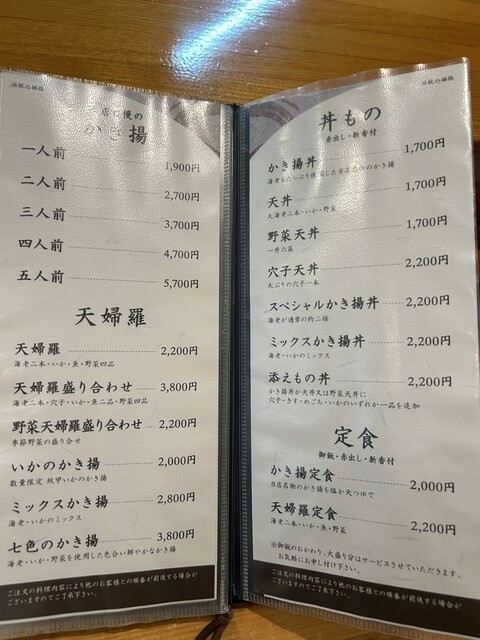 ※税込価格
店自慢の
かき揚
一人前 1,900円
二人前 2,700円
三人前 3,700円
四人前 4,700円
五人前 5,700円
天婦羅
天婦羅 2,200円
海老二本・いか・魚・野菜四品
天婦羅盛り合わせ 3,800円
海老二本・穴子・いか・魚二品・野菜四品
野菜天婦羅盛り合わせ 2,200円
季節野菜の盛り合せ
いかのかき揚 2,000円
数量限定 紋甲いかのかき揚
ミックスかき揚 2,800円
海老・いかのミックス
七色のかき揚 3,800円
海老・いか・野菜を使用した色合い鮮やかなかき揚
ご注文の料理内容により他のお客様との順番が前後する場合が
ございますのでご了承下さい。
※税込価格
丼もの
赤出し・新香付
かき揚丼 1,700円
海老をたっぷり使用した当店自慢のかき揚
天丼 1,700円
大海老二本・いか・野菜
野菜天丼 1,700円
一丼六菜
穴子天丼 2,200円
大ぶりの穴子一本
スペシャルかき揚丼 2,200円
海老が通常の約二倍
ミックスかき揚丼 2,200円
海老・いかのミックス
添えもの丼 2,200円
かき揚丼か天丼又は野菜天丼に
穴子・きす・めごち・いかのいずれか一品を追加
定食
御飯・赤出し・新香付
かき揚定食 2,000円
当店名物のかき揚を塩か天つゆで
天婦羅定食 2,200円
海老二本・いか・魚・野菜
※御飯のおかわり、大盛り分はサービスさせていただきます。
お気軽にお申し付け下さい。
ご注文の料理内容により他のお客様との順番が前後する場合が
ございますのでご了承下さい。